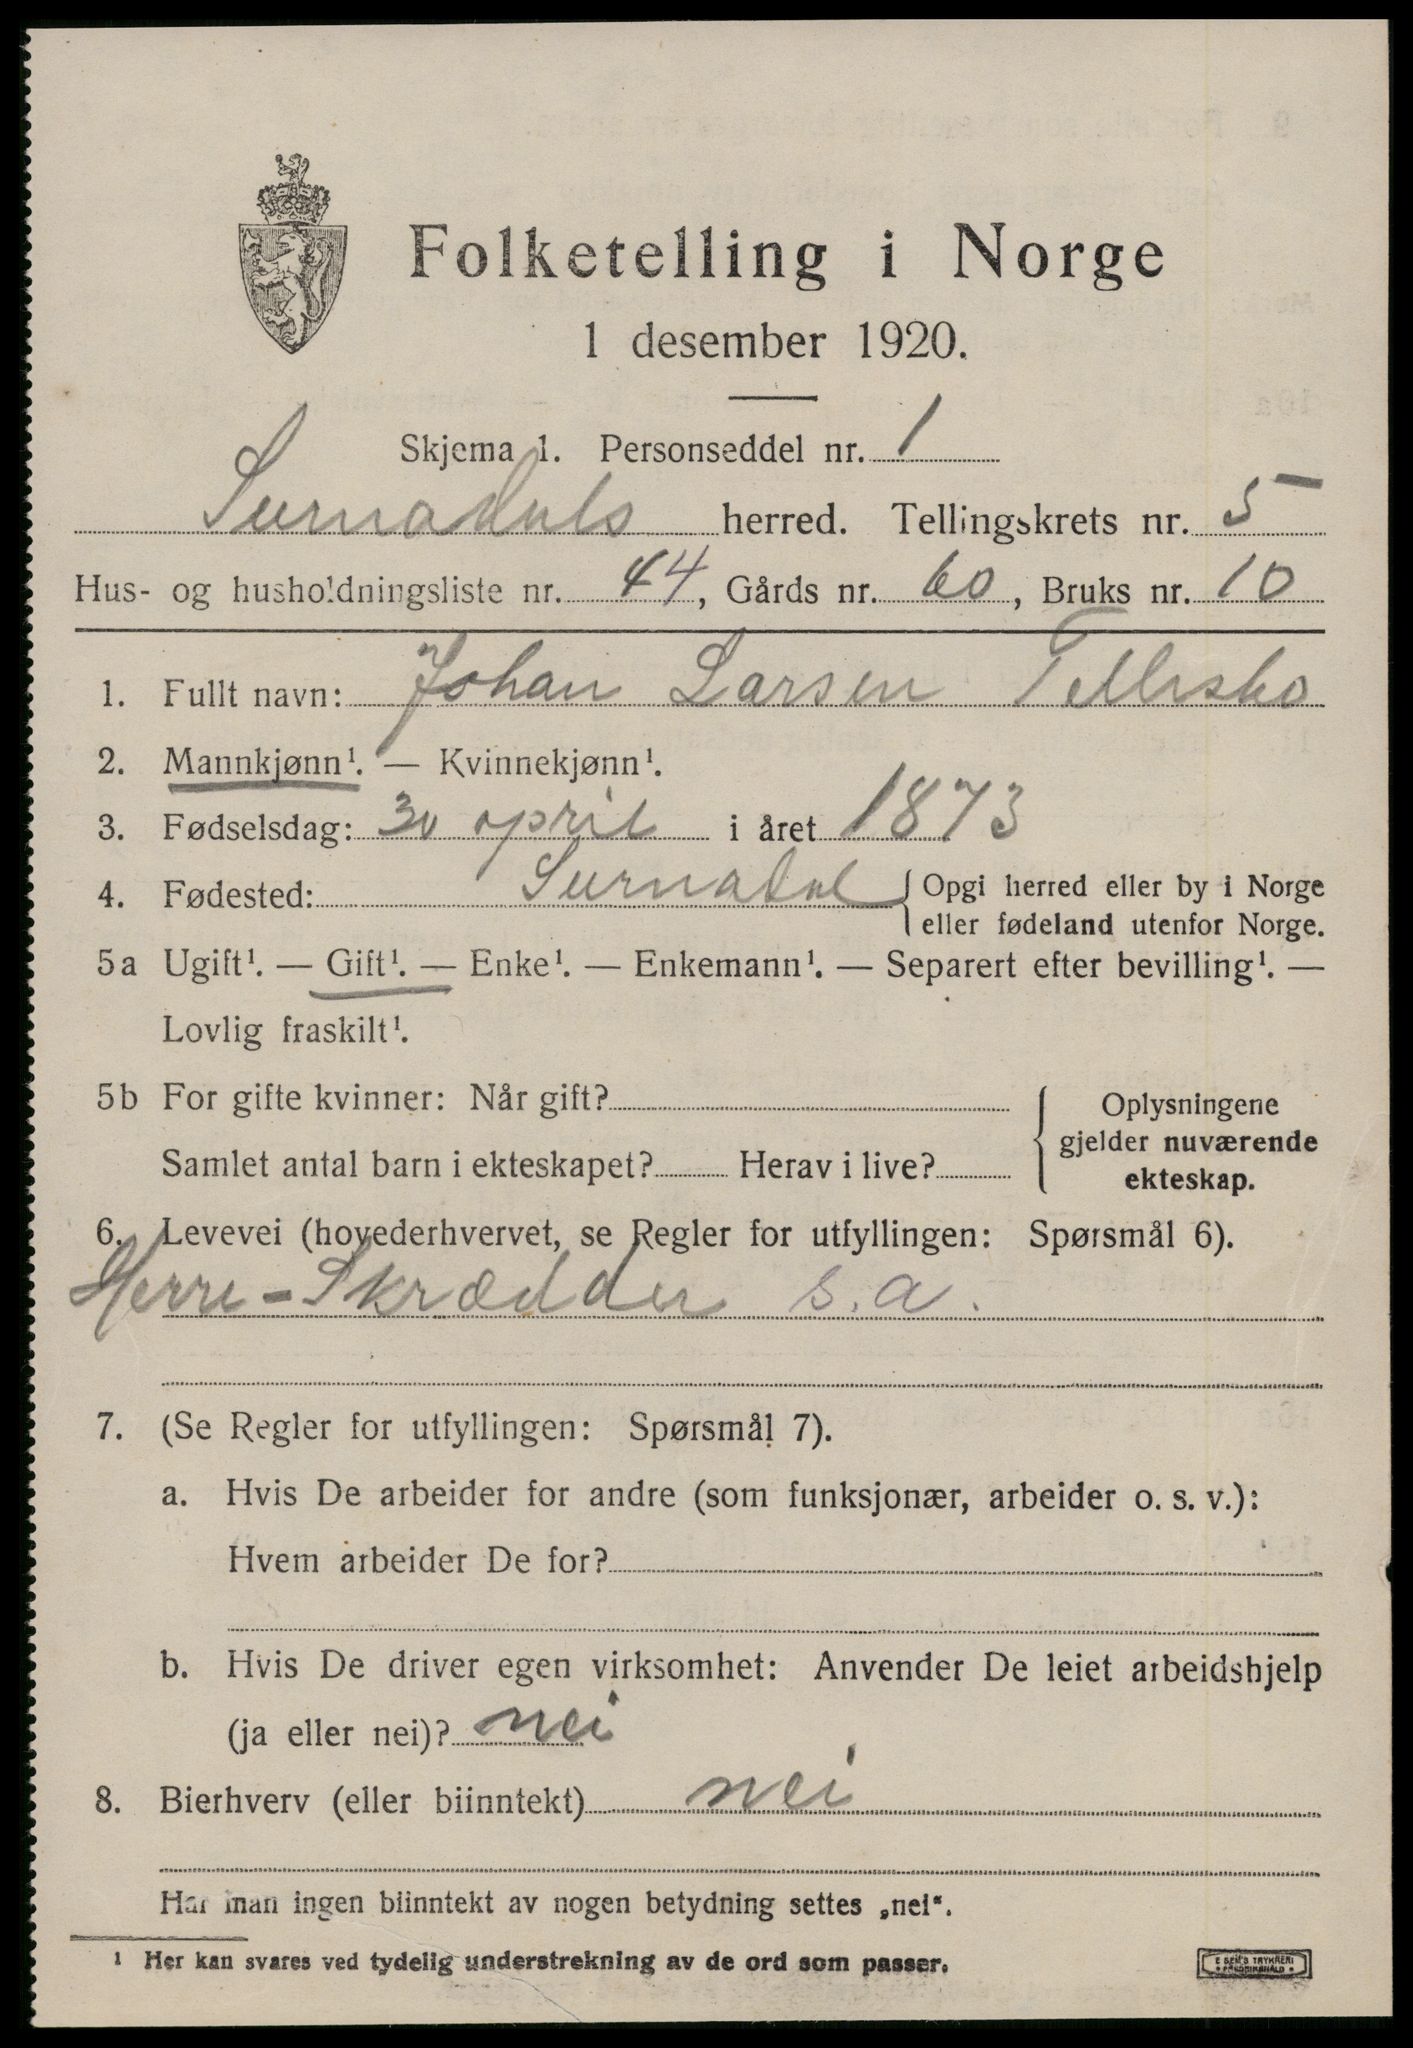 Folketelling i Norge
1 desember 1920.
Skjema 1. Personseddel nr. 1
Surnadals herred. Tellingskrets nr. 5
Hus- og husholdningsliste nr. 44, Gårds nr. 60, Bruks nr. 10
1. Fullt navn: Johan Larsen Tellesbø
2. Mannkjønn¹. — Kvinnekjønn¹.
3. Fødselsdag: 30 april i året 1873
4. Fødested: Surnadal { Opgi herred eller by i Norge
eller fødeland utenfor Norge.
5a Ugift¹. — Gift¹. — Enke¹. — Enkemann¹. — Separert efter bevilling¹. —
Lovlig fraskilt¹.
5b For gifte kvinner: Når gift?
Samlet antal barn i ekteskapet? Herav i live?
{ Oplysningene
gjelder nuværende
ekteskap.
6. Levevei (hovederhvervet, se Regler for utfyllingen: Spørsmål 6).
Herre-Skrædder s.a.
7. (Se Regler for utfyllingen: Spørsmål 7).
a. Hvis De arbeider for andre (som funksjonær, arbeider o. s. v.):
Hvem arbeider De for?
b. Hvis De driver egen virksomhet: Anvender De leiet arbeidshjelp
(ja eller nei)? nei
8. Bierhverv (eller biinntekt) nei
Har man ingen biinntekt av nogen betydning settes „nei“.
¹ Her kan svares ved tydelig understrekning av de ord som passer.
E SEM'S TRYKKERI
• FREDRIKSHALD •